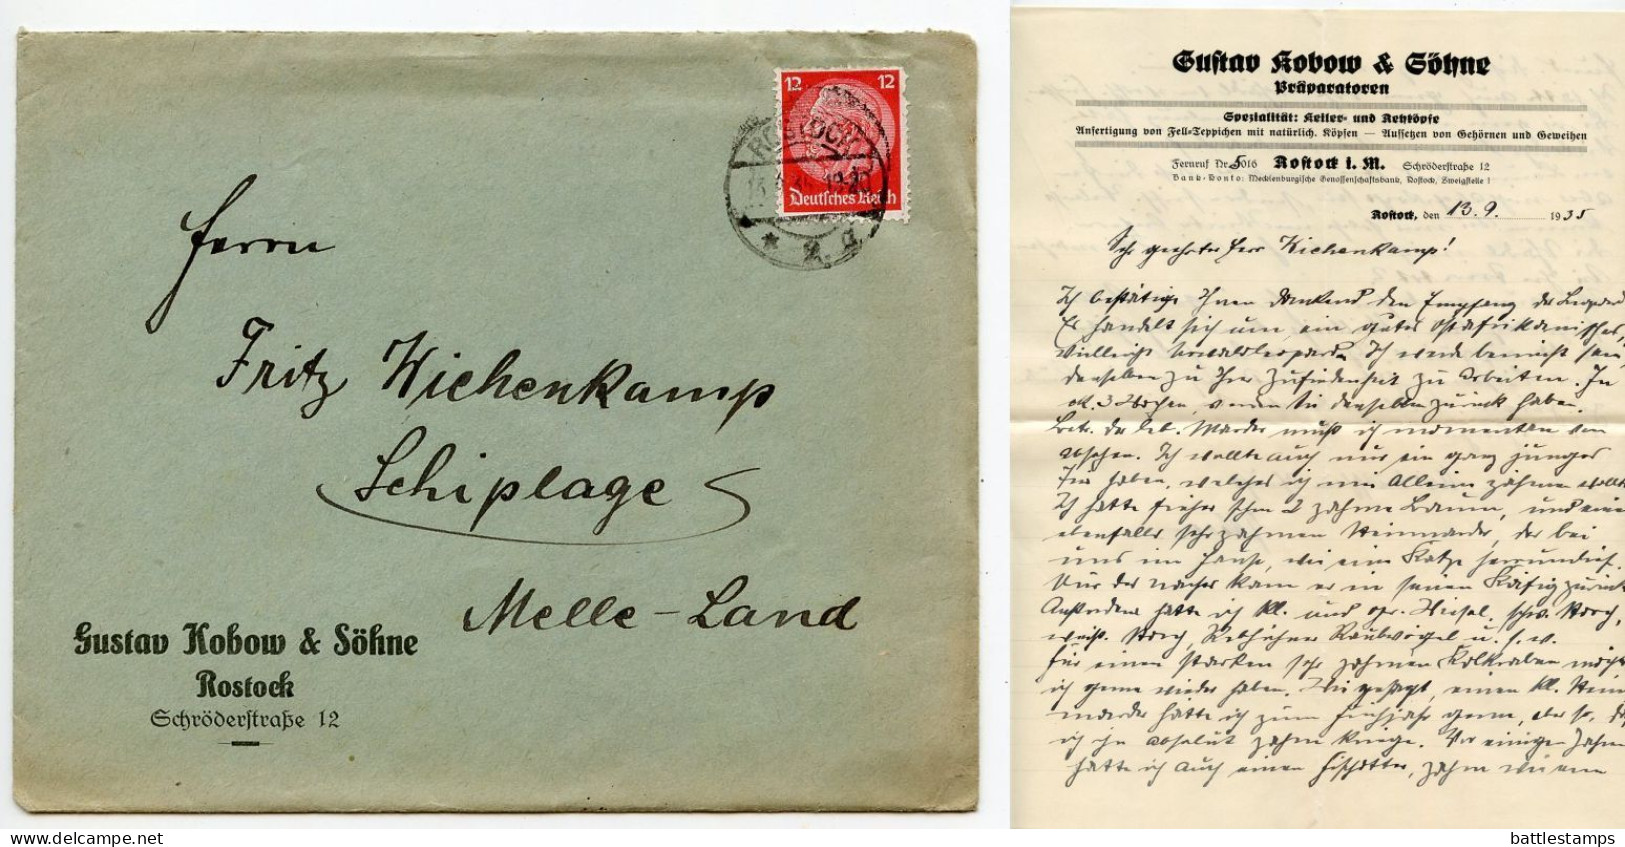 12 12
Deutsches Reich
ROSTOCK
Herrn
Fritz Wiehenkamp
Schiplage
Melle-Land
Gustav Kobow & Söhne
Rostock
Schröderstraße 12
Gustav Kobow & Söhne
Präparatoren
Spezialität: Keiler- und Rehköpfe
Anfertigung von Fell-Teppichen mit natürlich. Köpfen — Aufsetzen von Gehörnen und Geweihen
Fernruf Nr. 5016 Rostock i. M. Schröderstraße 12
Bank-Konto: Mecklenburgische Genossenschaftsbank, Rostock, Zweigstelle 1
Rostock, den 13.9. 1935
Sehr geehrter Herr Wiehenkamp!
Ich bestätige Ihnen dankend den Empfang der
Es handelt sich um ein gutes Ostafrikanisches,
vielleicht Ich werde bemüht sein
denselben zu Ihrer Zufriedenheit zu arbeiten. In
3 Wochen, werden Sie denselben zurück haben.
Betr. der leb. Marder muß ich momentan von
absehen. Ich wollte auch nur ein ganz junges
Tier haben, welches ich mir allein zähmen wollte
Ich hatte früher schon 2 zahme Baum, und einen
ebenfalls sehr zahmen Steinmarder, der bei
uns im Hause, wie eine Katze herrumlief.
Nur des nachts kam er in seinen Käfig zurück
Außerdem hatte ich kl. und gr. Wiesel, schw. Storch,
weiß. Storch, Rebhühner Raubvögel u. s. w.
für einen starken sehr zahmen Kolkraben möcht
ich gerne wieder haben. Wie gesagt, einen kl. Stein
marder hätte ich zum Frühjahr gerne, aber so, daß
ich ihn absolut zahm kriege. Vor einigen Jahren
hatte ich auch einen Fischotter, zahm wie ein
battlestamps